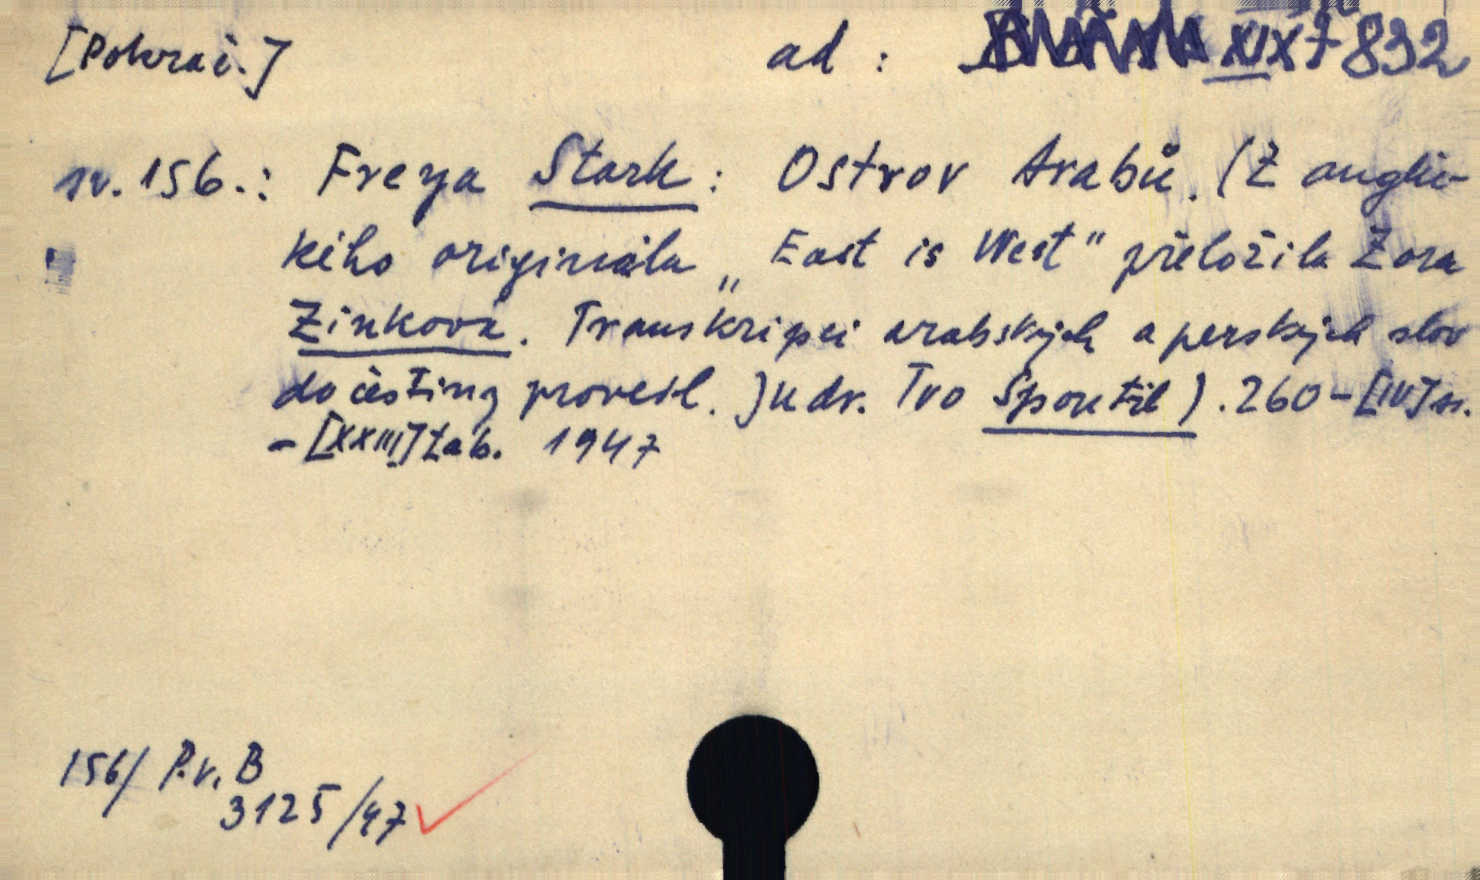 [Pokrač.] ad: XIX 7832
sv. 156.: Freya Stark: Ostrov Arabů. (Z anglic-
kého originálu „East is West" přeložila Zora
Zinková. Transkripci arabských a perských slov
do češtiny provedl. Judr. Ivo Športil). 260-[IV] s.
-[XXIII] tab. 1947
156/ P.v. B
3125/47